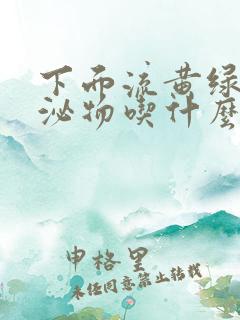 下而流黄绿
泌物喫什麽
申格里
未经同意禁止转载